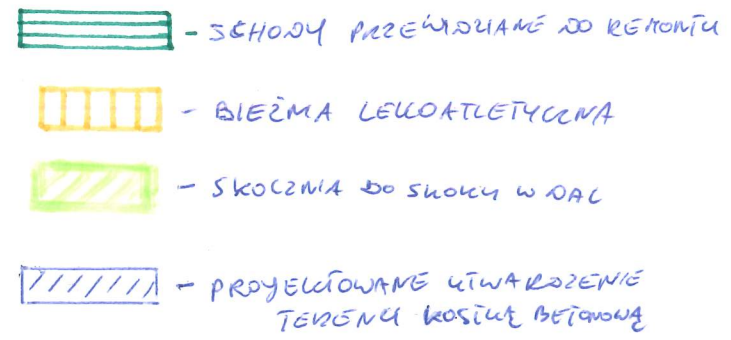 - SCHODY PRZEWIDZIANE DO REMONTU
- BIEŻNIA LEKKOATLETYCZNA
- SKOCZNIA DO SKOKU W DAL
- PROJEKTOWANE UTWARDZENIE
TERENU KOSTKĄ BETONOWĄ